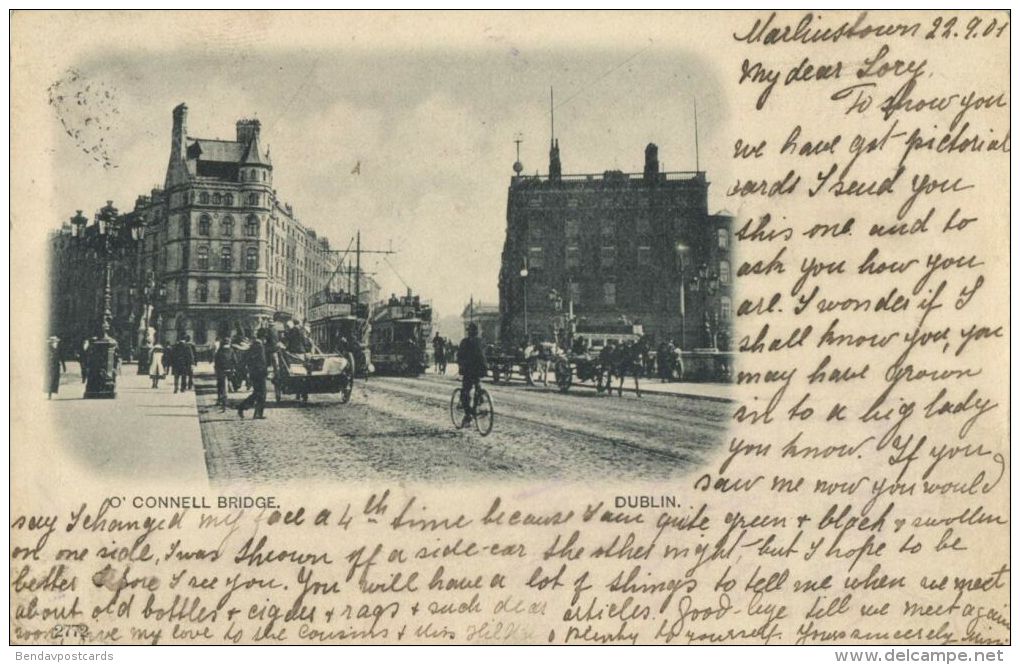 Marlinstown 22.9.01
My dear Lory,
To show you
we have got pictorial
cards I send you
this one and to
ask you how you
are. I wonder if I
shall know you, you
may have grown
in to a big lady
you know. If you
saw me now you would
O' CONNELL BRIDGE.
DUBLIN.
say I changed my face a 4th time because I am quite green + black + swollen
on one side, I was thrown off a side-car the other night, but I hope to be
better before I see you. You will have a lot of things to tell me when we meet
about old bottles + cigars + rags + such dear articles. Good-bye till we meet again
soon. Give my love to the cousins + Miss + plenty to yourself. Yours sincerely
2772
Bendavpostcards
www.delcampe.net